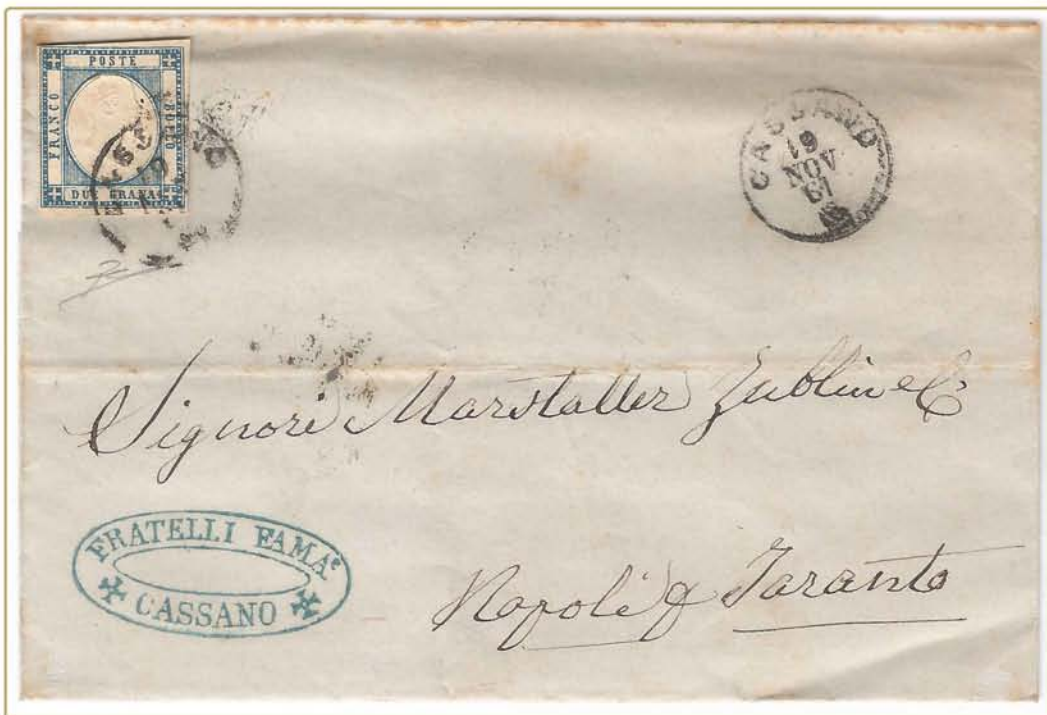 POSTE
FRANCO
BOLLO
DUE GRANA
CASSANO
19
NOV
61
Signori Marstaller Zublin e C.
FRATELLI FAMÀ
CASSANO
Napoli p Taranto